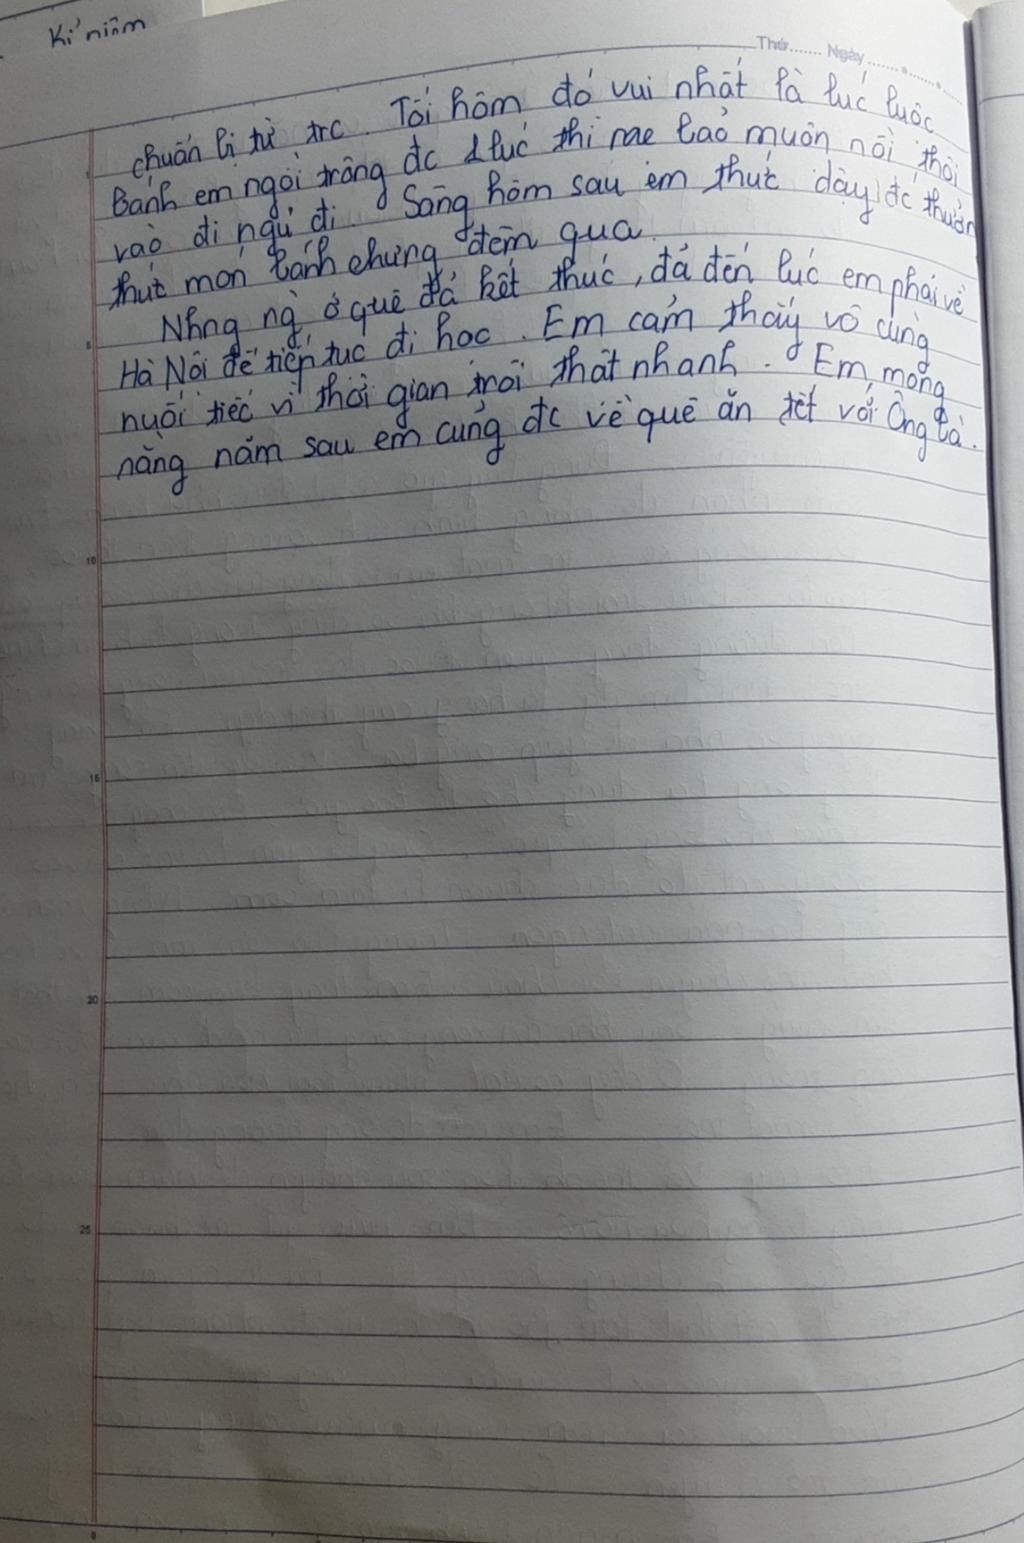 Kỉ niệm
Thứ....... Ngày.......
chuẩn bị từ trc. Tối hôm đó vui nhất là lúc luộc
Bánh em ngồi trông đc 1 lúc thì mẹ bảo muộn rồi thôi
vào đi ngủ đi. Sáng hôm sau em thức dậy đc thưởn
thức món bánh chưng đêm qua.
Nhng ng` ở quê đã kết thúc, đã đến lúc em phải về
5
Hà Nội để tiếp tục đi học. Em cảm thấy vô cùng
nuối tiếc vì thời gian trôi thật nhanh. Em mong
năng năm sau em cũng đc về quê ăn tết với Ông bà.
10
15
20
25